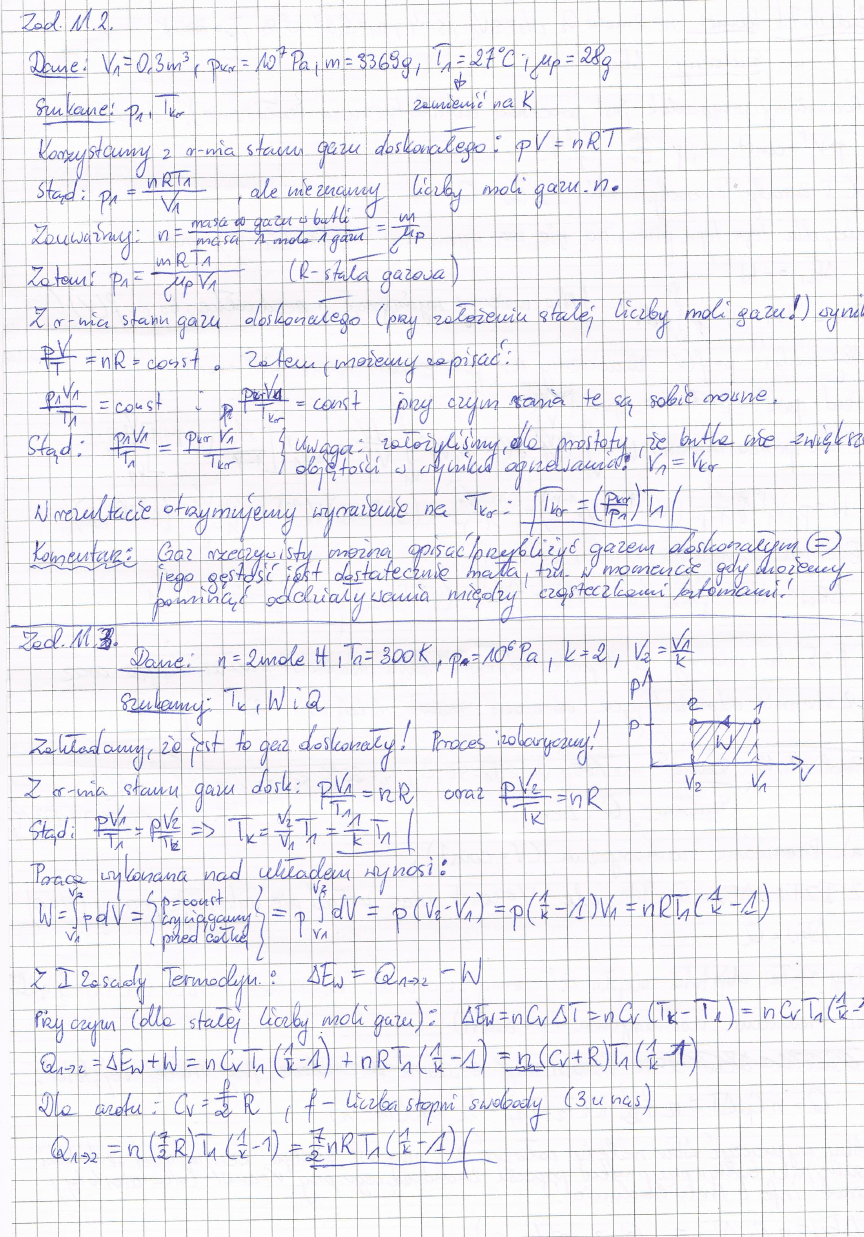 Zad. M.2.
Dane: V₁=0,3m³, p_kr=10⁷Pa, m=3369g, T₁=27°C, μ_p=28g
zamienić na K
Szukane: p₁, T_kr
Korzystamy z r-nia stanu gazu doskonałego: pV=nRT
Stąd: p₁ = nRT₁/V₁, ale nie znamy liczby moli gazu n.
Zauważmy: n = masa gazu w butli/masa 1 mola gazu = m/μ_p
Zatem: p₁ = mRT₁/μ_pV₁ (R-stała gazowa)
Z r-nia stanu gazu doskonałego (przy założeniu stałej liczby moli gazu!) wyni
pV/T = nR = const. Zatem, możemy zapisać:
p₁V₁/T₁ = const i p_krV₁/T_kr = const przy czym te są sobie równe.
Stąd: p₁V₁/T₁ = p_krV₁/T_kr { Uwaga: założyliśmy, dla prostoty, że butla nie zwiększ
objętości w wyniku ogrzewania: V₁=V_kr
W rezultacie otrzymujemy wyrażenie na T_kr: T_kr = (p_kr/p₁)T₁
Komentarz: Gaz rzeczywisty można opisać/przybliżyć gazem doskonałym (=)
jego gęstość jest dostatecznie mała, tzn. w momencie gdy możemy
pominąć oddziaływania między cząsteczkami/atomami!
Zad. M.3.
Dane: n=2mole H, T₁=300K, p=10⁶Pa, k=2, V₂=V₁/k
Szukamy: T_k, W i Q
p
2 1
p
W
V₂ V₁ V
Zakładamy, że jest to gaz doskonały! Proces izobaryczny!
Z r-nia stanu gazu dosk: pV₁/T₁ = nR oraz pV₂/T_k = nR
Stąd: pV₁/T₁ = pV₂/T_k => T_k = V₂/V₁ T₁ = 1/k T₁
Praca wykonana nad układem wynosi:
W = ∫_V₁^V₂ pdV = {p=const wyciągamy przed całkę} = p ∫_V₁^V₂ dV = p(V₂-V₁) = p(1/k-1)V₁ = nRT₁(1/k-1)
Z I Zasady Termodyn.: ΔE_w = Q₁→₂ - W
Przy czym (dla stałej liczby moli gazu): ΔE_w = nC_vΔT = nC_v(T_k-T₁) = nC_vT₁(1/k-
Q₁→₂ = ΔE_w+W = nC_vT₁(1/k-1) + nRT₁(1/k-1) = n(C_v+R)T₁(1/k-1)
Dla azotu: C_v = f/2 R, f - liczba stopni swobody (3 u nas)
Q₁→₂ = n(7/2R)T₁(1/k-1) = 7/2nRT₁(1/k-1)